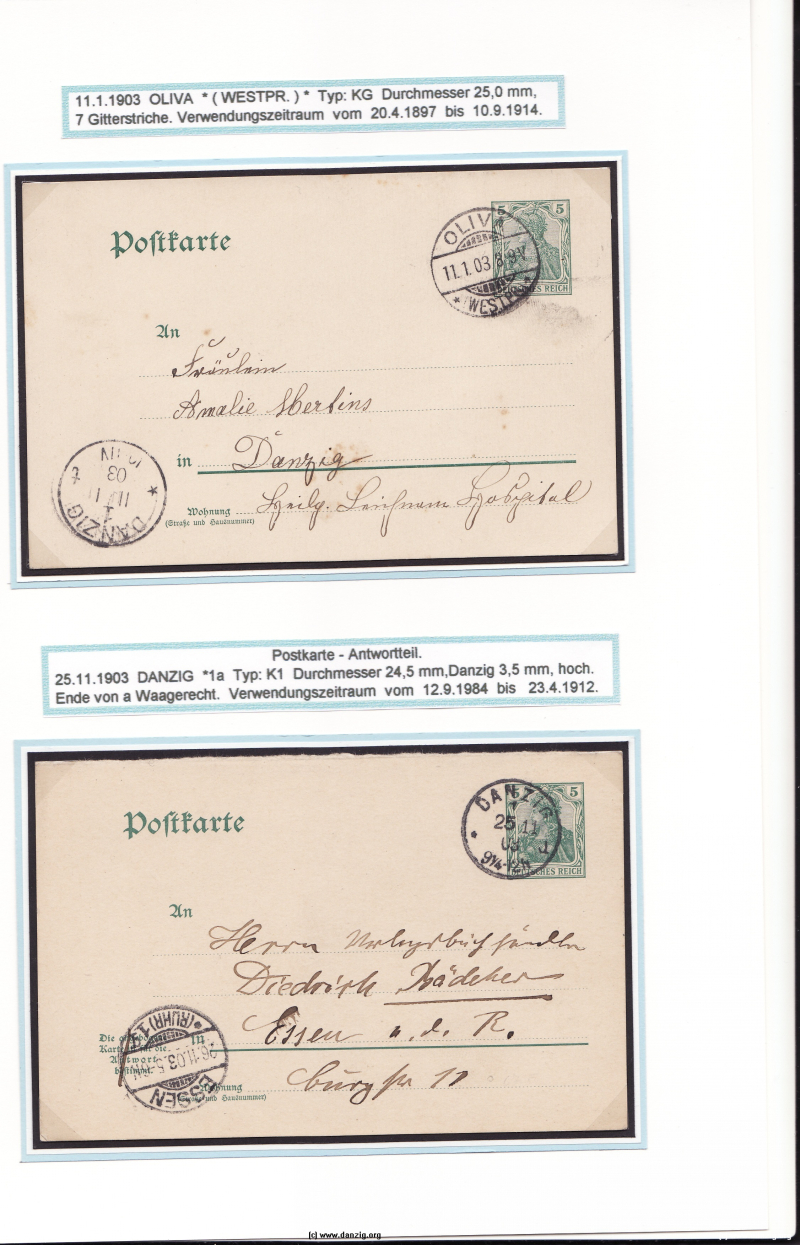 11.1.1903 OLIVA * ( WESTPR. ) * Typ: KG Durchmesser 25,0 mm,
7 Gitterstriche. Verwendungszeitraum vom 20.4.1897 bis 10.9.1914.
Postkarte
5 5
DEUTSCHES REICH
OLIVA
11.1.03.8-9V
* (WESTPR.) *
An
Fräulein
Amalie Mertins
in Danzig
Wohnung Heilg. Leichnam Hospital
(Straße und Hausnummer)
DANZIG
03
Postkarte - Antwortteil.
25.11.1903 DANZIG *1a Typ: K1 Durchmesser 24,5 mm,Danzig 3,5 mm, hoch.
Ende von a Waagerecht. Verwendungszeitraum vom 12.9.1984 bis 23.4.1912.
Postkarte
5 5
DEUTSCHES REICH
DANZIG
25 11
03
An
Herrn Verlagsbuchhändler
Diedrich Bädeker
Essen a. d. R.
in
Die
Karte für die
Antwort
bestimmt.
Burgstr 11
Wohnung
(Straße und Hausnummer)
ESSEN
26.11.03.5-6
*(RUHR)1*
(c) www.danzig.org